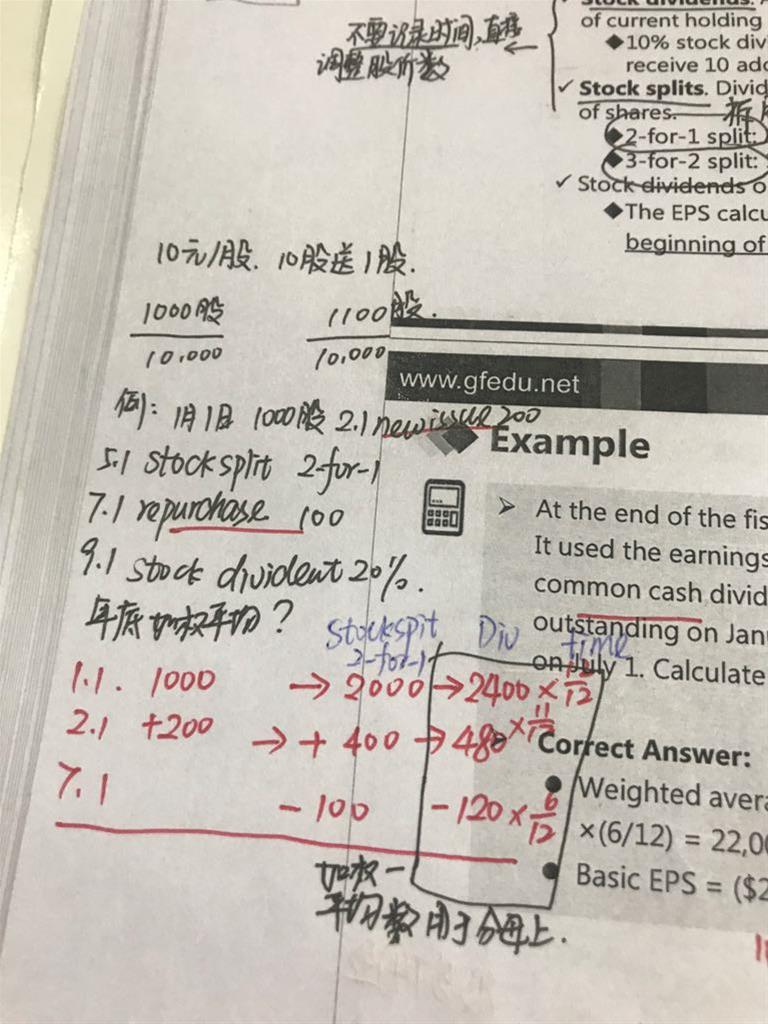 Stock dividends.
of current holding
◆10% stock div
receive 10 add
不要记录时间,直接
调整股价数
✓ Stock splits. Divid
of shares.
◆2-for-1 split:
◆3-for-2 split:
✓ Stock dividends o
◆The EPS calcu
beginning of
10元/股. 10股送1股.
1000股 1100股.
10,000 10,000
www.gfedu.net
例: 1月1日 1000股 2.1 new issue 200
Example
5.1 stock split 2-for-1
7.1 repurchase 100
9.1 stock divident 20%.
年底加权平均?
➢ At the end of the fis
It used the earnings
common cash divid
outstanding on Janu
on July 1. Calculate
Stockspit Div time
2-for-1
1.1. 1000 → 2000 → 2400 × 12/12
2.1 +200 → + 400 → 480 × 11/12
7.1 - 100 - 120 × 6/12
Correct Answer:
Weighted avera
×(6/12) = 22,00
Basic EPS = ($2
加权一
平均数用于分母上.